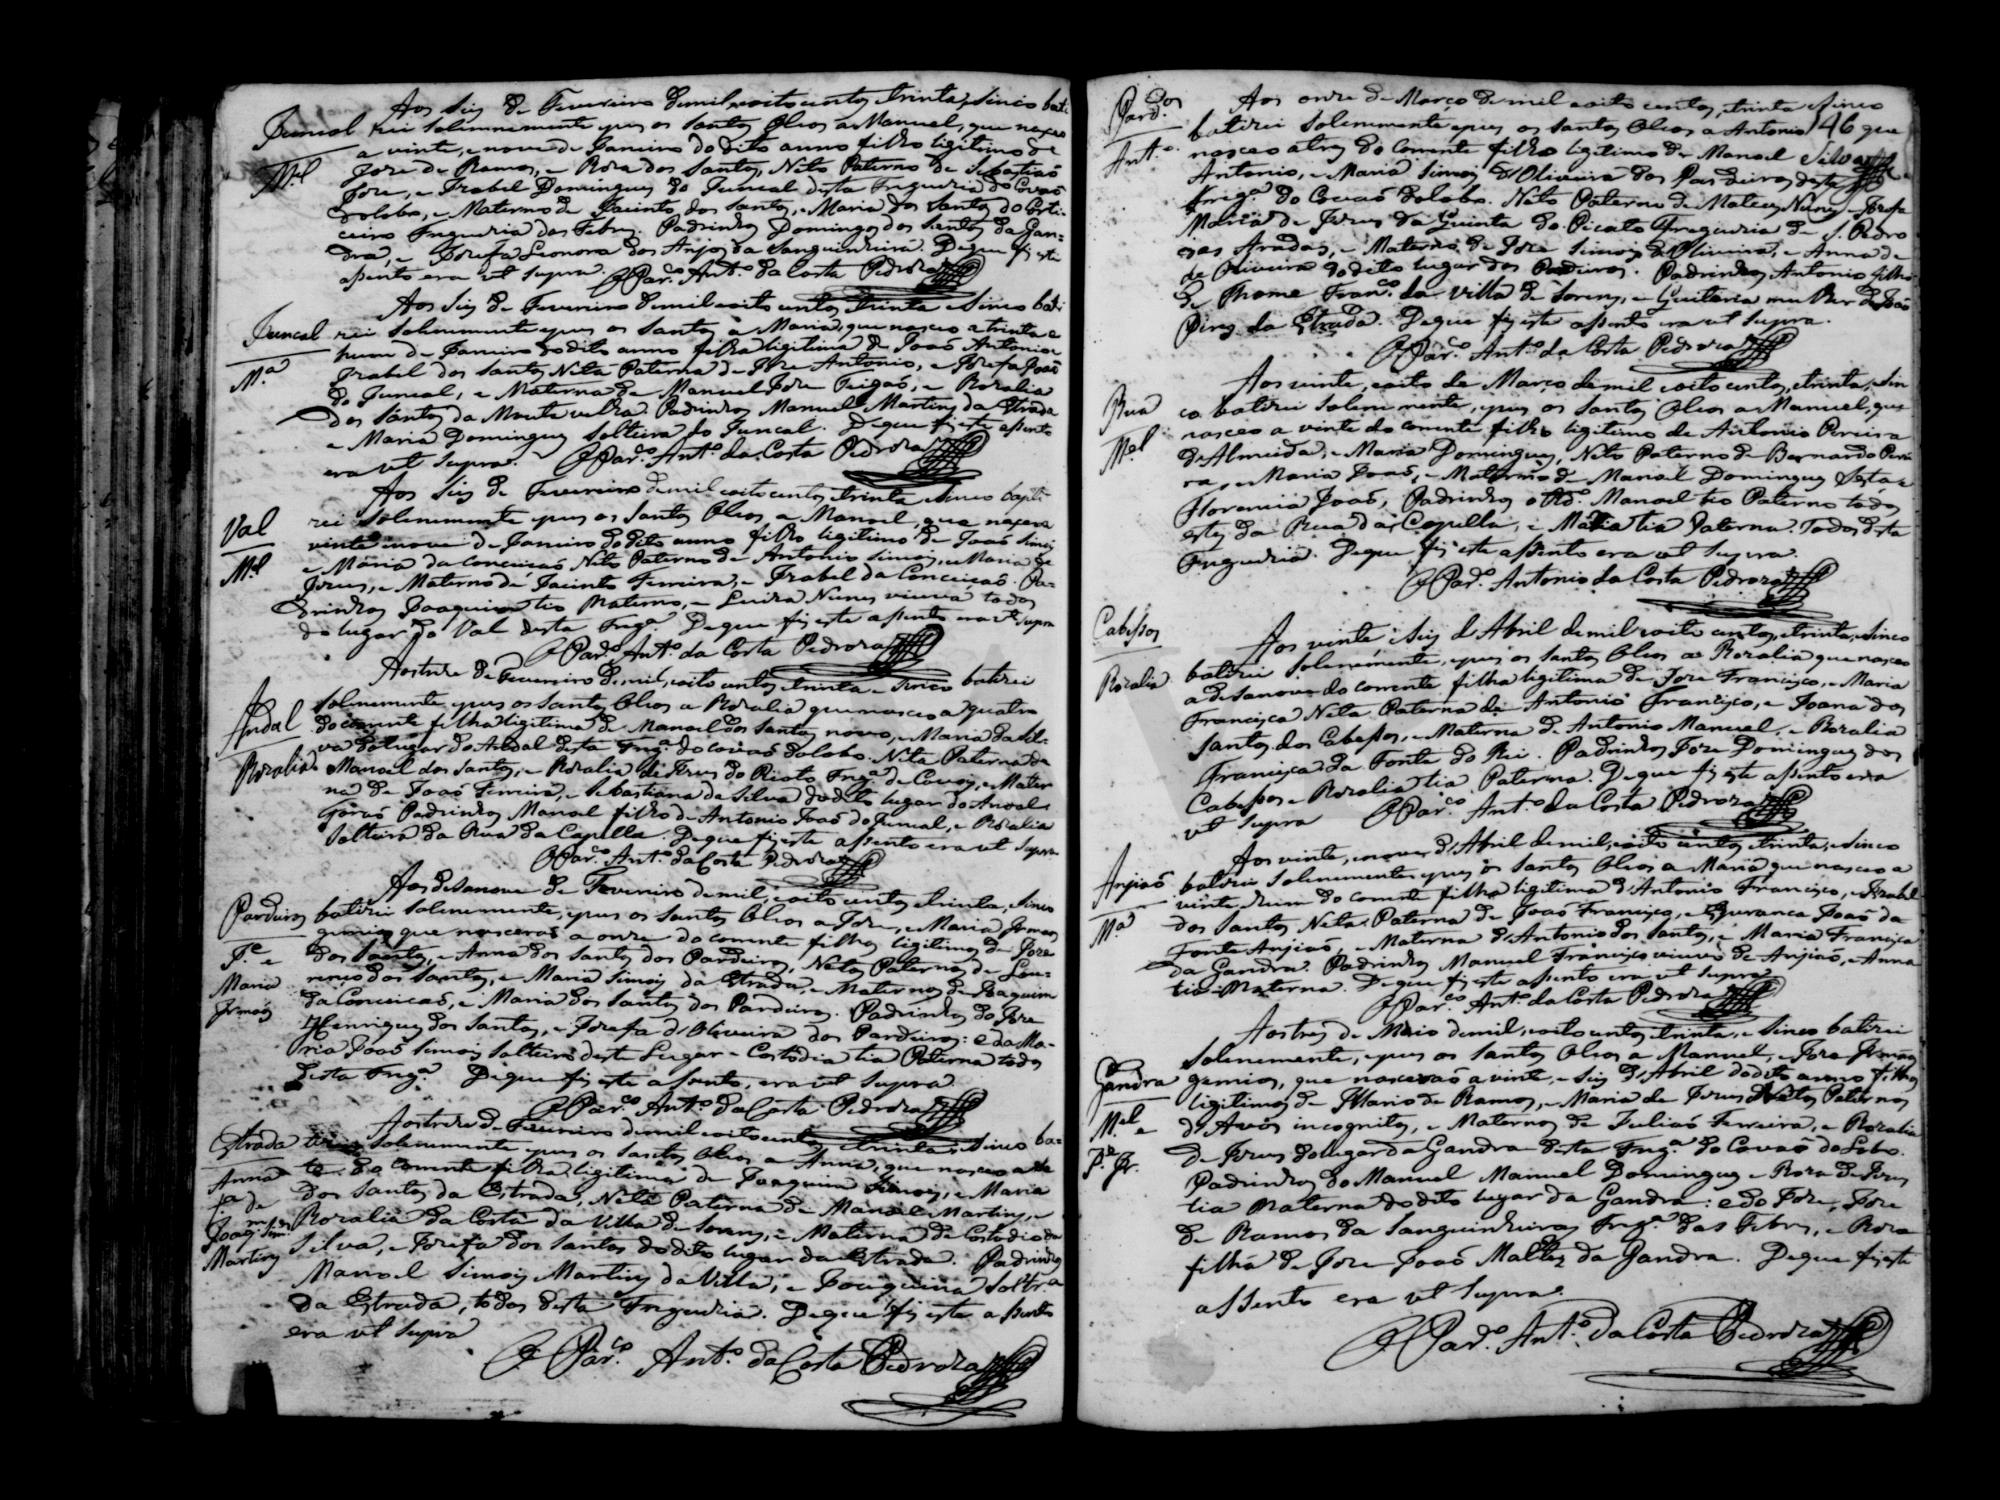 Aos seis de Fevereiro de mil, e oito centos, e trinta, e sinco bati
Juncal
zei solemnemente e pus os Santos Oleos a Manuel, que nasceo
a vinte, e nove de Janeiro do dito anno filho ligitimo de
M.el
Joze de Ramos, e Roza dos Santos, Neto Paterno de Sebastiaõ
Joze, e Izabel Domingues do Juncal desta Freguezia do Covaõ
do lobo, e Materno de Jacinto dos Santos, e Maria dos Santos do Corti
ceiro Freguezia das Febres. Padrinhos Domingos dos Santos da Gan=
dra, e Jozefa Leonora dos Anjos da Sanguinheira. De que fis este
assento era ut supra.
O Par.co Ant.o da Costa Pedroza
Aos seis de Fevereiro de mil e oito centos trinta e sinco bati
Juncal
zei solenemente e pus os Santos a Maria, que nasceo a trinta e
hum de Janeiro do dito anno filha ligitima de Joaõ Antonio e
M.a
Izabel dos Santos Neta Paterna de Joze Antonio, e Jozefa Joaõ
do Juncal, e Materna de Manuel Joze Teigaõ, e Rozalia
dos Santos da Monte velha. Padrinhos Manuel Martins da Estrada
e Maria Domingues Solteira do Juncal. De que fis este assento
era ut supra.
O Par.co Ant.o da Costa Pedroza
Aos seis de Fevereiro de mil e oito centos e trinta e sinco bapti
Val
zei solenemente e pus os Santos Oleos a Manoel, que nasceo a
vinte e nove de Janeiro do dito anno filho ligitimo de Joaõ Simois
M.el
e Maria da Conceicaõ Neto Paterno de Antonio Simois, e Maria de
Jezus, e Materno de Jacinto Ferreira, e Izabel da Conceicaõ. Pa=
drinhos Joaquim tio Materno, e Luiza Nunes viuva todos
do lugar do Val desta Freg.a De que fis este assento era ut supra
O Par.co Ant.o da Costa Pedroza
Aos treze de Fevereiro de mil, e oito centos, e trinta e sinco batizei
solenemente, e pus os Santos Oleos a Rozalia que nasceo a quatro
Andal
do corrente filha ligitima de Manoel dos Santos novo, e Maria da Sil=
va do lugar do Andal desta Freg.a do Covaõ do lobo. Neta Paterna de
Rozalia
Manoel dos Santos, e Rozalia de Jezus do Rioto Freg.a de Covois, e Mater
na de Joaõ Ferreira, e Sebastiana da Silva do dito lugar do Andal.
Foraõ Padrinhos Manoel filho de Antonio Joaõ do Juncal, e Rozalia
Solteira da Rua da Capella. De que fis este assento era ut supra
O Par.co Ant.o da Costa Pedroza
Aos desanove de Fevereiro de mil, e oito centos e trinta, e sinco
Pardieiros
batizei solenemente, e pus os Santos Oleos a Joze, e Maria Irmaos
gemios que nasceraõ a onze do corrente filhos ligitimos de Joze
J.e e
dos Santos, e Anna dos Santos dos Pardieiros, Netos Paternos de Lou=
Maria
renco dos Santos, e Maria Simois da Estrada, e Maternos de Joaquim
Irmaõs
da Conceicaõ, e Maria dos Santos dos Pardieiros. Padrinhos do Joze
Henriques dos Santos, e Jozefa d'Oliveira dos Pardieiros: e da Ma=
ria Joaõ Simois Solteiro deste Lugar e Custodia tia Paterna todos
desta Freg.a De que fis este assento, era ut supra
O Par.co Ant.o da Costa Pedroza
Aos treze de Fevereiro de mil e oito centos, e trinta, e sinco ba=
Estrada
tizei solenemente e pus os Santos Oleos a Anna, que nasceo a
Anna
do corrente filha ligitima de Joaquim Simois, e Maria
f.a de
dos Santos da Estrada, Neta Paterna de Manoel Martins, e
Joaq.m Sim.s
Rozalia da Costa da Villa de Sorens, e Materna de Custodio da
Martins
Silva, e Jozefa dos Santos do dito lugar da Estrada. Padrinhos
Manoel Simois Martins da Villa, e Joaquina Soltr.a
da Estrada, todos desta Freguezia. De que fis este assento
era ut supra
O Par.co Ant.o da Costa Pedroza
Aos onze de Março de mil e oito centos, e trinta e sinco
Pard.os
batizei solenemente e pus os Santos Oleos a Antonio 146 que
Ant.o
nasceo a tres do corrente filho ligitimo de Manoel Silva
Antonio, e Maria Simois d'Oliveira dos Pardieiros desta
Freg.a do Covaõ do lobo. Neto Paterno de Mateus Nunes e Jozefa
Maria de Jezus da Quinta do Picato Freguezia de S. Pedro
das Aradas, e Materno de Joze Simois d'Oliveira, e Anna de
de Oliveira do dito lugar dos Pardieiros. Padrinhos Antonio filho
de Thome Fran.co da Villa de Sorens, e Guiteria mulher de Joaõ
Pires da Estrada. De que fis este assento era ut supra.
O Par.co Ant.o da Costa Pedroza
Aos vinte, e oito de Março de mil e oito centos, e trinta, e sin
Rua
co batizei solenemente, e pus os Santos Oleos a Manuel, que
nasceo a vinte do corrente filho ligitimo de Antonio Pereira
M.el
d'Almeida, e Maria Domingues, Neto Paterno de Bernardo Perei
ra, e Maria Joaõ, e Materno de Manoel Domingues Sesta e
Florencia Joaõ, Padrinhos o R.do Manoel tio Paterno todos
estes da Rua da Capella, e Maria tia Paterna. Todos desta
Freguezia. De que fis este assento era ut supra.
O Par.co Antonio da Costa Pedroza
Cabessos
Aos vinte e seis d'Abril de mil e oito centos, e trinta, e sinco
batizei solenemente, e pus os Santos Oleos a Rozalia que nasceo
Rozalia
a desanove do corrente filha ligitima de Joze Francisco, e Maria
Francisca Neta Paterna de Antonio Francisco, e Joana dos
Santos dos Cabessos, e Materna de Antonio Manuel, e Rozalia
Francisca da Fonte do Rei. Padrinhos Joze Domingues dos
Cabessos e Rozalia tia Paterna. De que fis este assento era
ut supra
O Par.co Ant.o da Costa Pedroza
Aos vinte, e nove d'Abril de mil, e oito centos e trinta, e sinco
Anjiaõ
batizei solenemente e pus os Santos Oleos a Maria que nasceo a
vinte e hum do corrente filha ligitima d'Antonio Francisco, e Izabel
M.a
dos Santos Neta Paterna de Joaõ Francisco, e Esperanca Joaõ da
Fonte Anjiaõ, e Materna d'Antonio dos Santos, e Maria Francisca
da Gandra. Padrinhos Manuel Francisco viuvo de Anjiaõ, e Anna
tia Materna. De que fis este assento era ut supra
O Par.co Ant.o da Costa Pedroza
Aos tres de Maio de mil, e oito centos e trinta, e sinco batizei
solenemente, e pus os Santos Oleos a Manuel, e Joze Irmaos
Gandra
gemios, que nasceraõ a vinte, e seis d'Abril do dito anno filhos
ligitimos de Mario de Ramos, e Maria de Jezus Netos Paternos
M.el e
d'Avós incognitos, e Maternos de Juliaõ Ferreira, e Rozalia
J.e Ir.
de Jezus do lugar da Gandra desta Freg.a do Covaõ do Lobo.
Padrinhos do Manuel Manuel Domingues e Roza de Jezus
tia Materna do dito lugar da Gandra: e do Joze, Joze
de Ramos da Sanguinheira Freg.a das Febres, e Roza
filha de Joze Joaõ Maltes da Gandra. De que fis este
assento era ut supra.
O Par.co Ant.o da Costa Pedroza